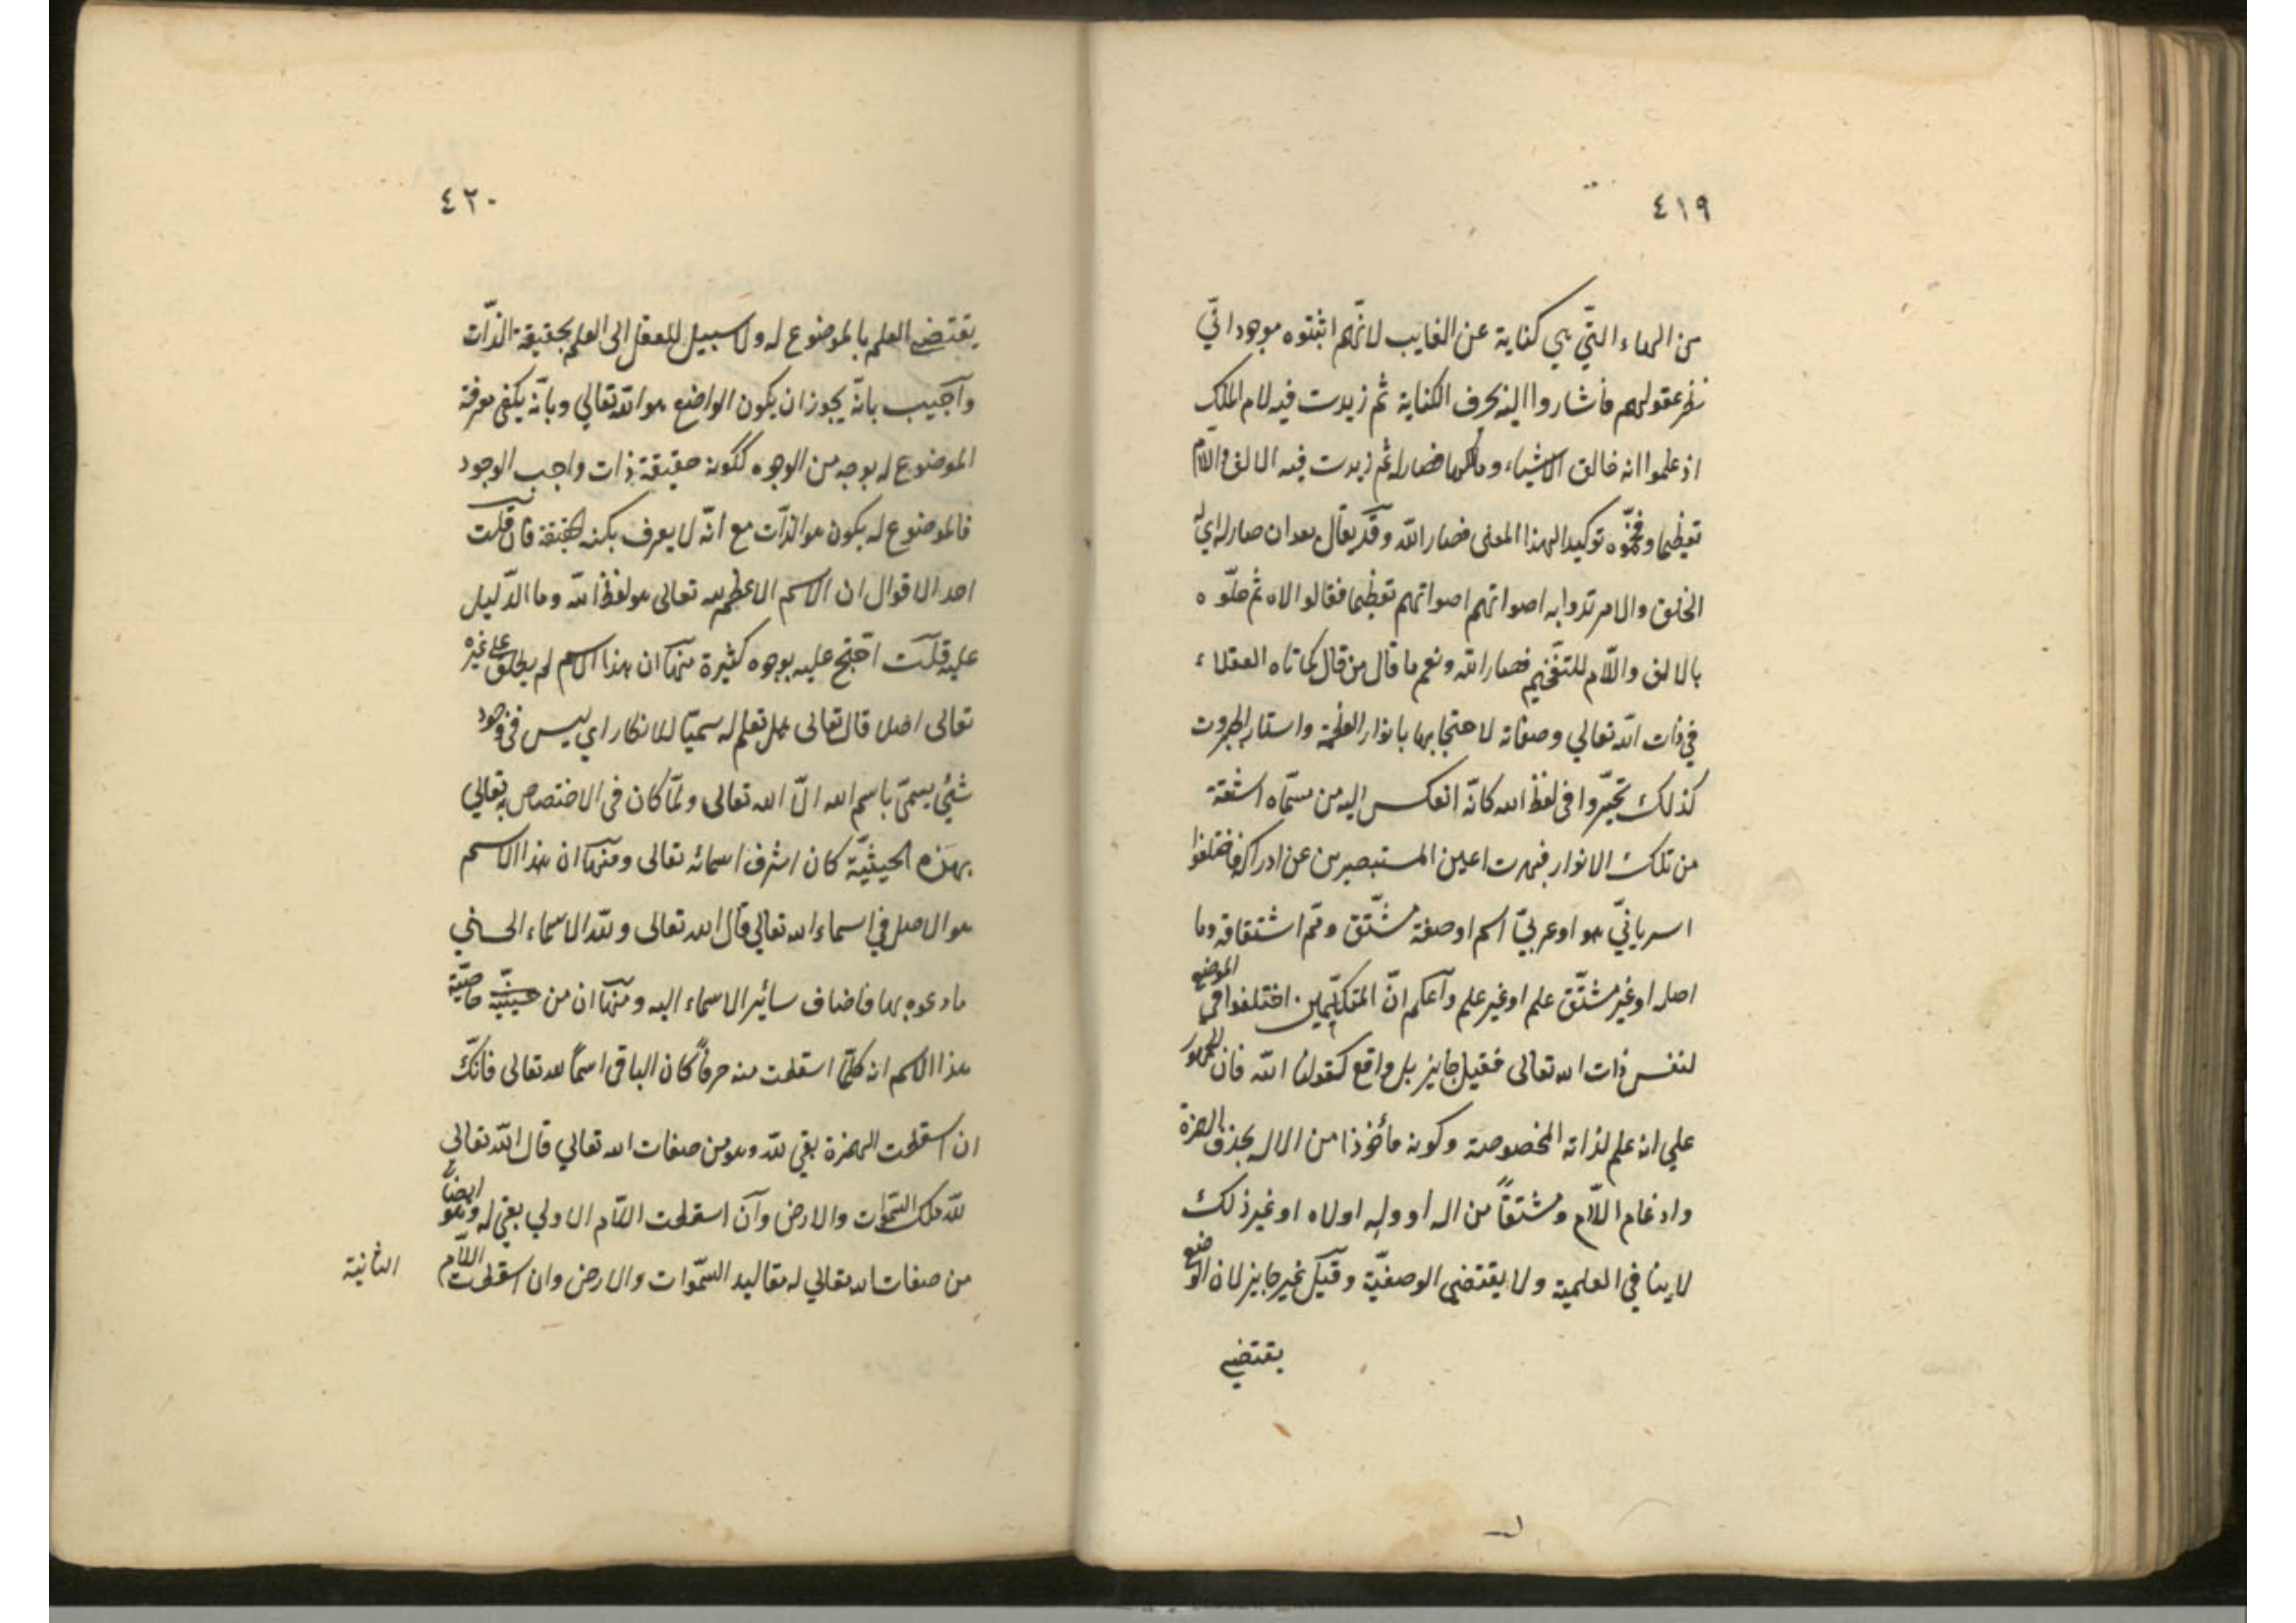 ٤١٩
من الهاء التّي هي كناية عن الغايب لانّهم اثبتوه موجودا في
نظر عقولهم فأشاروا اليه بحرف الكناية ثم زيدت فيه لام الملك
اذ علموا انه خالق الاشياء ومالكها فصار له ثم زيدت فيه الالف واللام
تعظيما وفخّموه توكيدا لهذا المعنى فصار الله وقد يقال بعد ان صار له اي له
الخلق والامر تدوا به اصواتهم اصواتهم تعظيما فقالوا لاه ثم حلّوه
بالالف واللّام للتفخيم فصار الله ونعم ما قال من قال كما تاه العقلاء
في ذات الله تعالي وصفاته لاحتجابها بانوار العظمة واستار الجبروت
كذلك تحيّروا في لفظ الله كانّه انعكس اليه من مسمّاه اشعّة
من تلك الانوار فبهرت اعين المستبصرين عن ادراكه فاختلفوا
اسريانيّ هو او عربيّ اسم او صفة مشتّق وممّ اشتقاقه وما
اصله او غير مشتّق علم او غير علم وآعلم انّ المتكلّمين اختلفوا في الوضع
لنفس ذات الله تعالى فقيل جايز بل واقع كقولنا الله فان الجمهور
علي انه علم لذاته المخصوصة وكونه مأخوذا من الاله بحذف الهمزة
وادغام اللّام ومشتقاً من اله او وله او لاه او غير ذلك
لاينافي العلمية ولا يقتضي الوصفيّة وقيل غير جايز لان الوضع
يقتضي
٤٢٠
يقتضي العلم بالموضوع له ولا سبيل للعقل الى العلم بحقيقة الذّات
وآجيب بانّه يجوز ان يكون الواضع هو الله تعالي وبانّه يكفى معرفة
الموضوع له بوجه من الوجوه ككونه حقيقة ذات واجب الوجود
فالموضوع له يكون هو الذّات مع انّه لا يعرف بكنه حقيقة فان قلت
احد الاقوال ان الاسم الاعظم لله تعالى هو لفظ الله وما الدّليل
عليه قلت احتّج عليه بوجوه كثيرة منها ان هذا الاسم لم يطلق على غيره
تعالى اصلا قال تعالى هل تعلم له سميّا للانكار اي ليس في وجود
شئي يسمىّ باسم الله الّا الله تعالى ولمّا كان في الاختصاص به تعالي
بهذه الحيثيّة كان اشرف اسمائه تعالى ومنها ان هذا الاسم
هو الاصل في اسماء الله تعالي قال الله تعالى ولله الاسماء الحسني
فادعوه بها فاضاف سائير الاسماء اليه ومنها ان من خاصّية
هذا الاسم انه كلمّا اسقطت منه حرفاً كان الباقى اسماً لله تعالى فانّك
ان اسقطت الهمزة بقي لله وهو من صفات الله تعالي قال الله تعالي
لله ملك السّموات والارض وآن اسقطت اللّام الاولي بقي له وهو ايضا
من صفات الله تعالي له مقاليد السّموات والارض وان اسقطت اللّام
الثانية